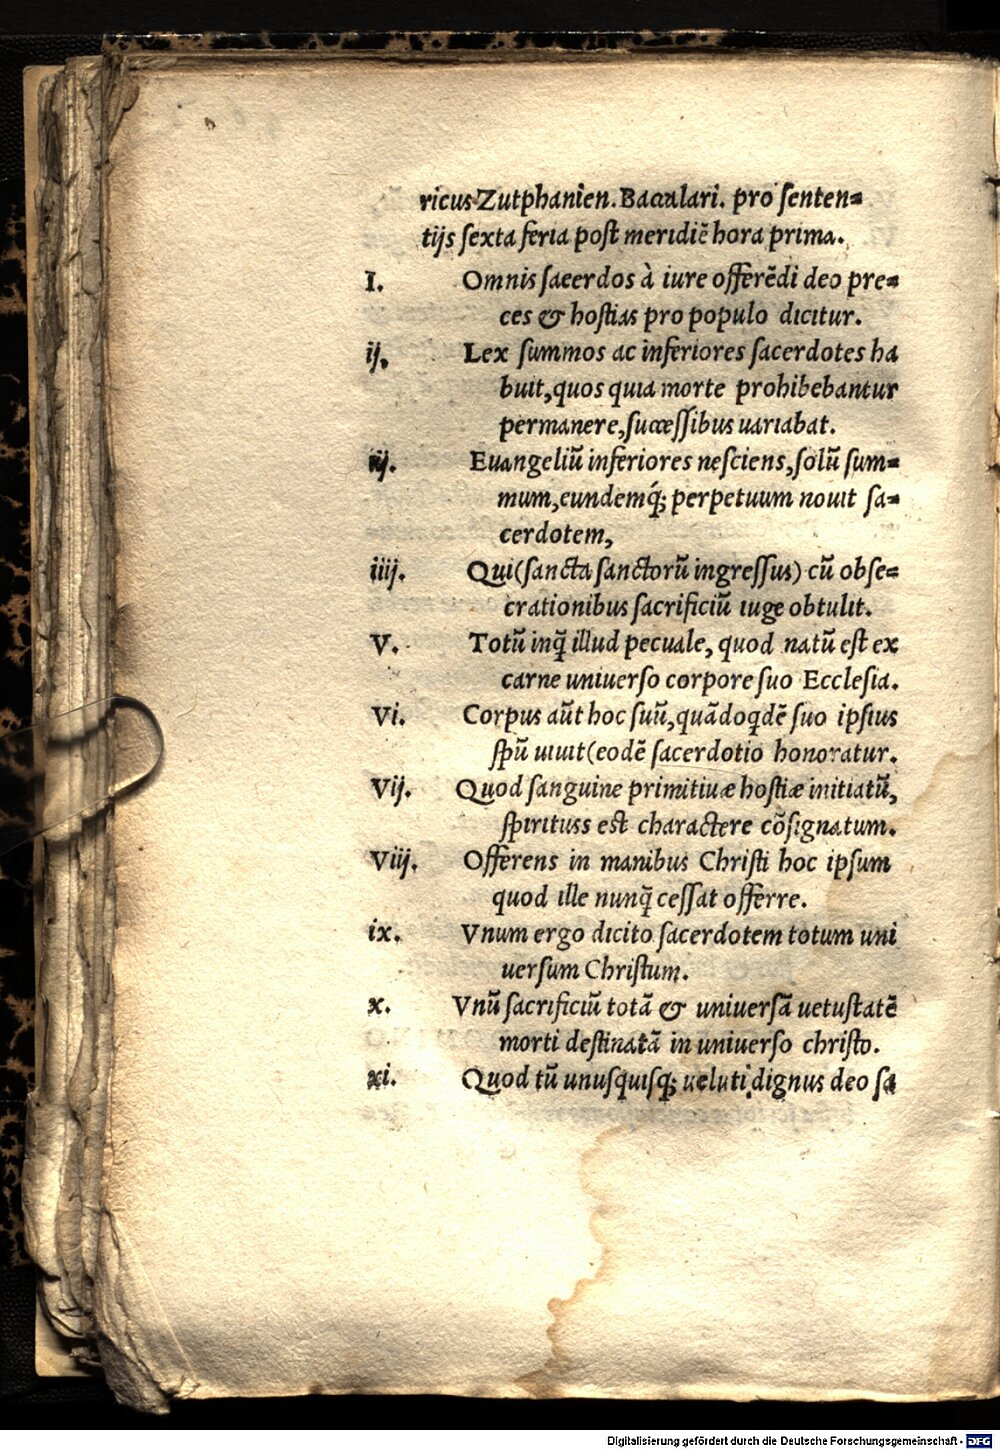 ricus Zutphanien. Baccalari. pro senten=
tijs sexta feria post meridiẽ hora prima.
I. Omnis saeerdos à iure offerẽdi deo pre=
ces & hostias pro populo dicitur.
ij. Lex summos ac inferiores sacerdotes ha
buit, quos quia morte prohibebantur
permanere, successibus uariabat.
iij. Euangeliũ inferiores nesciens, solũ sum=
mum, eundemq́; perpetuum nouit sa=
cerdotem,
iiij. Qui (sancta sanctorũ ingressus) cũ obse=
crationibus sacrificiũ iuge obtulit.
V. Totũ inq̃ illud pecuale, quod natũ est ex
carne uniuerso corpore suo Ecclesia.
Vi. Corpus aũt hoc suũ, quãdoqdẽ suo ipsius
spũ uiuit (eodẽ sacerdotio honoratur.
Vij. Quod sanguine primitiuæ hostiæ initiatũ,
spirituss est charactere cõsignatum.
Viij. Offerens in manibus Christi hoc ipsum
quod ille nunq̃ cessat offerre.
ix. Vnum ergo dicito sacerdotem totum uni
uersum Christum.
x. Vnũ sacrificiũ totã & uniuersã uetustatẽ
morti destinatã in uniuerso christo.
xi. Quod tũ unusquisq; ueluti dignus deo sa
Digitalisierung gefördert durch die Deutsche Forschungsgemeinschaft - DFG